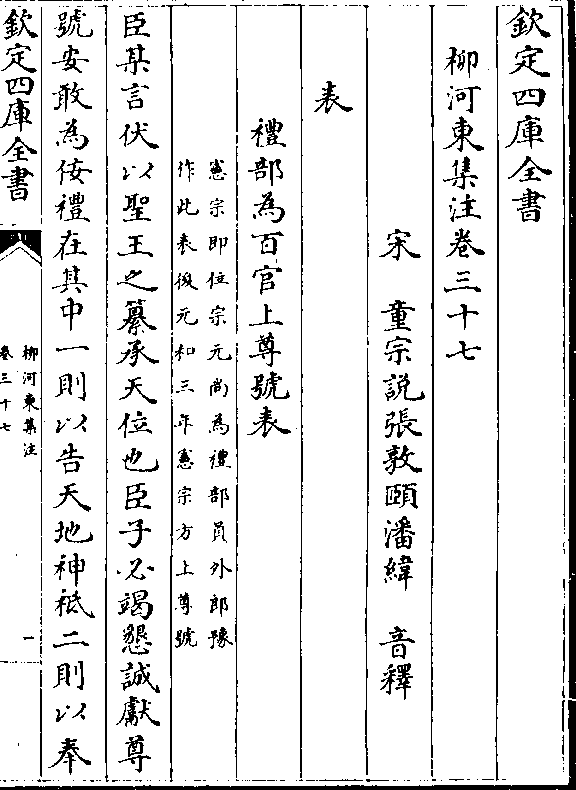 欽定四庫全書
柳河東集注卷三十七
宋 童宗説張敦頤潘緯 音釋
表
禮部為百官上尊號表
憲宗即位宗元尚為禮部員外郎豫
作此表後元和三年憲宗方上尊號
臣某言伏以聖王之纂承天位也臣子必竭懇誠獻尊
號安敢為佞禮在其中一則以告天地神祗二則以奉
欽定四庫全書
柳河東集注
卷三十七
一